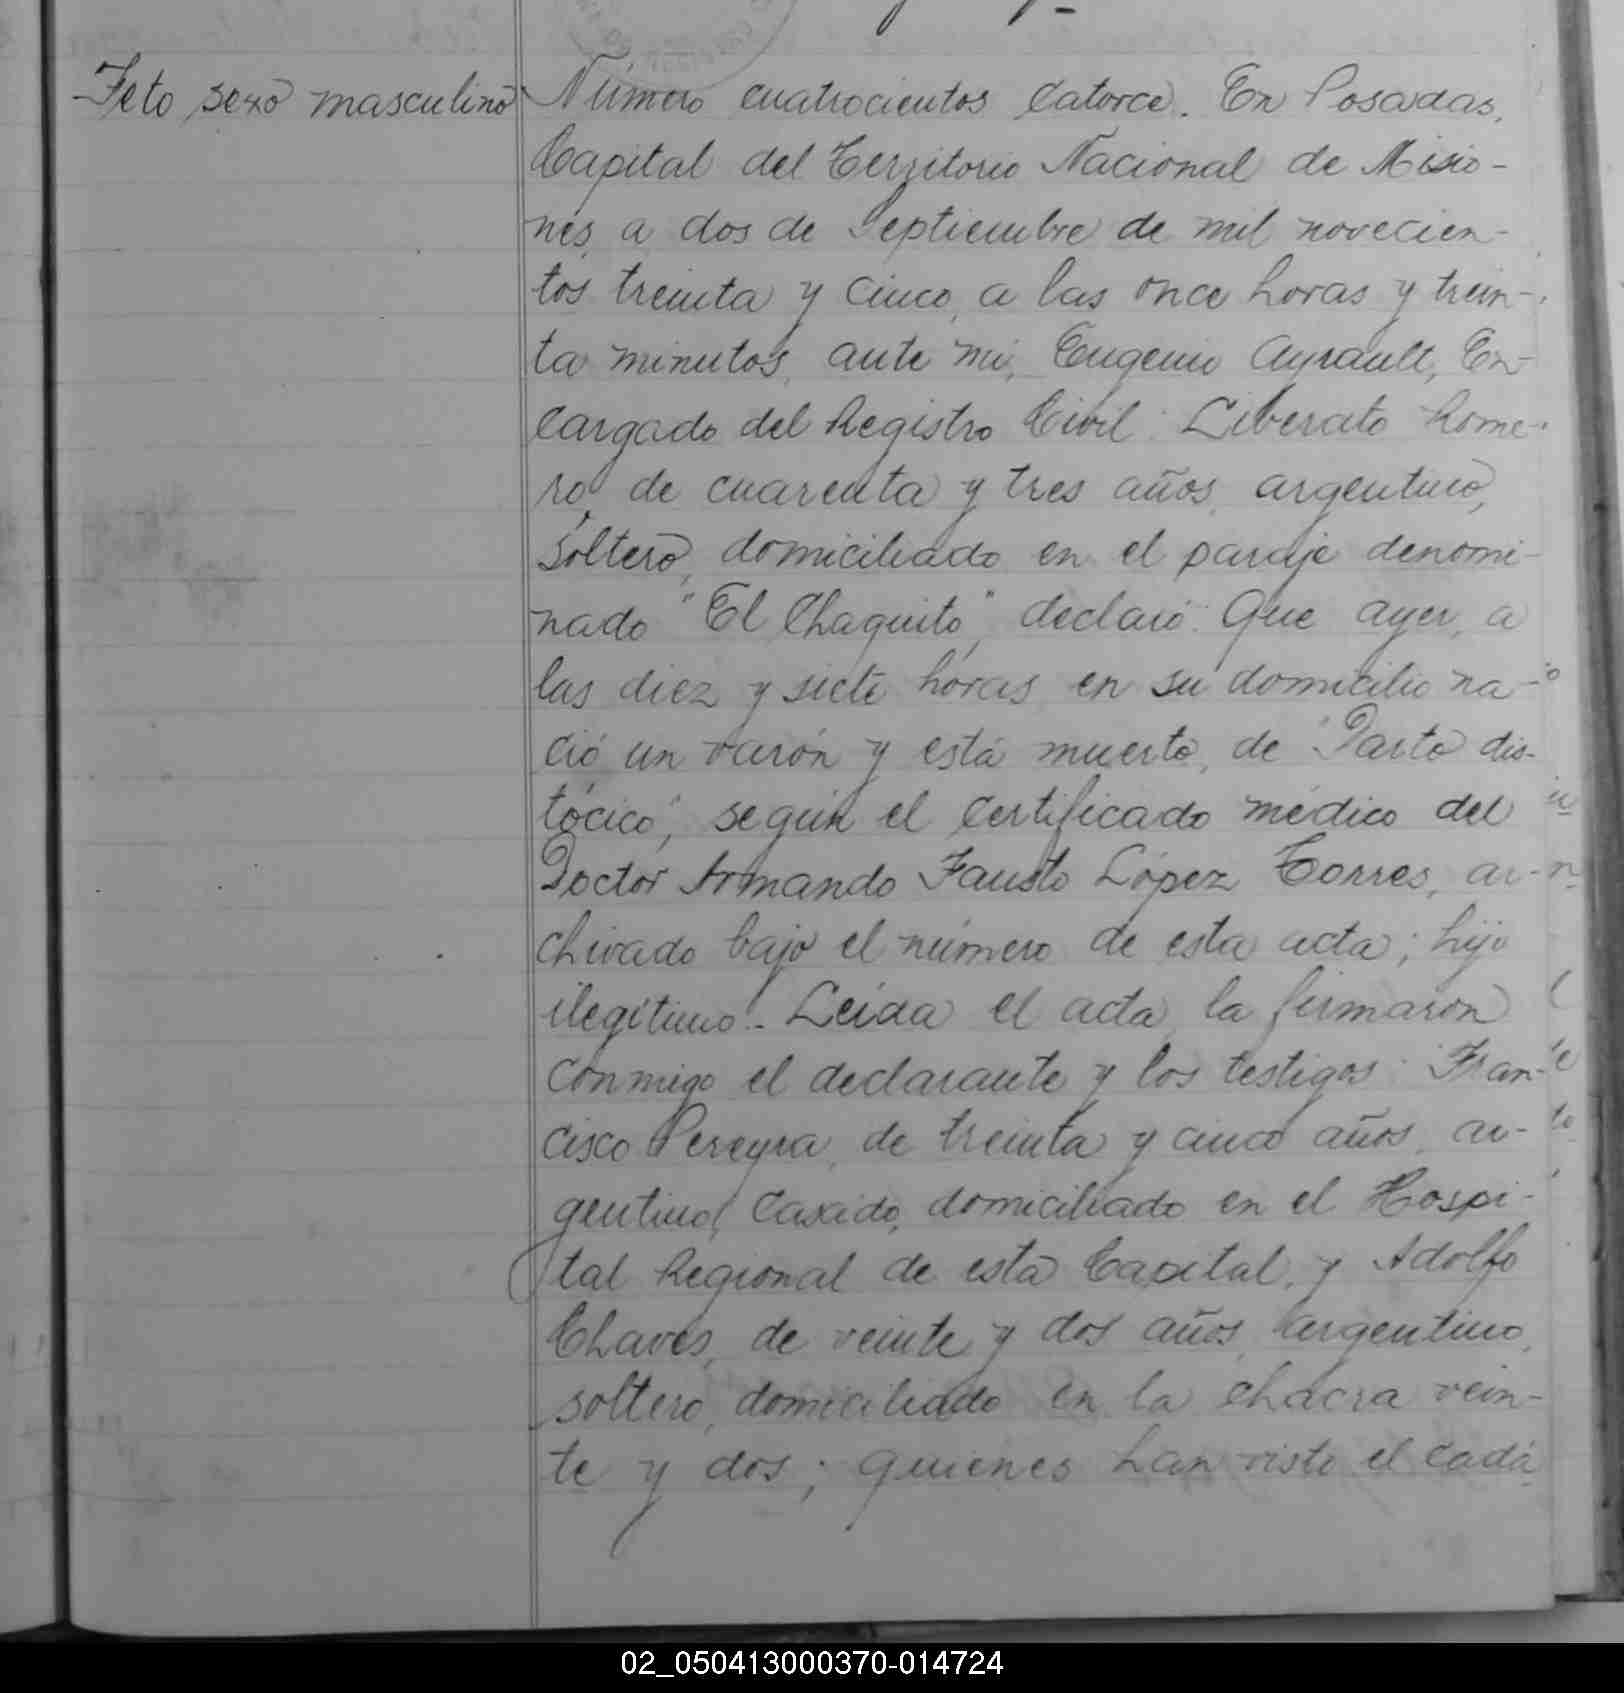 Feto sexo masculino
Número cuatrocientos catorce. En Posadas,
Capital del Territorio Nacional de Misio-
nes, a dos de Septiembre de mil novecien-
tos treinta y cinco, a las once horas y trein-
ta minutos, ante mi, Eugenio Ayrault, En-
cargado del Registro Civil: Liberato Rome-
ro, de cuarenta y tres años, argentino,
soltero, domiciliado en el paraje denomi-
nado "El Chaquito", declaró: Que ayer, a
las diez y siete horas en su domicilio na-
ció un varón y está muerto, de "Parto dis-
tócico", según el certificado médico del
Doctor Armando Fausto López Torres, ar-
chivado bajo el número de esta acta; hijo
ilegítimo.- Leída el acta la firmaron
conmigo el declarante y los testigos: Fran-
cisco Pereyra, de treinta y cinco años, ar-
gentino, casado, domiciliado en el Hospi-
tal Regional de esta Capital, y Adolfo
Chaves, de veinte y dos años, argentino,
soltero, domiciliado en la chacra vein-
te y dos; quienes han visto el cadá
02_050413000370-014724